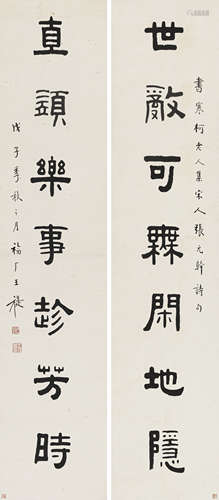 書寒柯老人集宋人張元幹詩句
世亂可無閑地隱
直須樂事趁芳時
戊子季秋之月福厂王禔